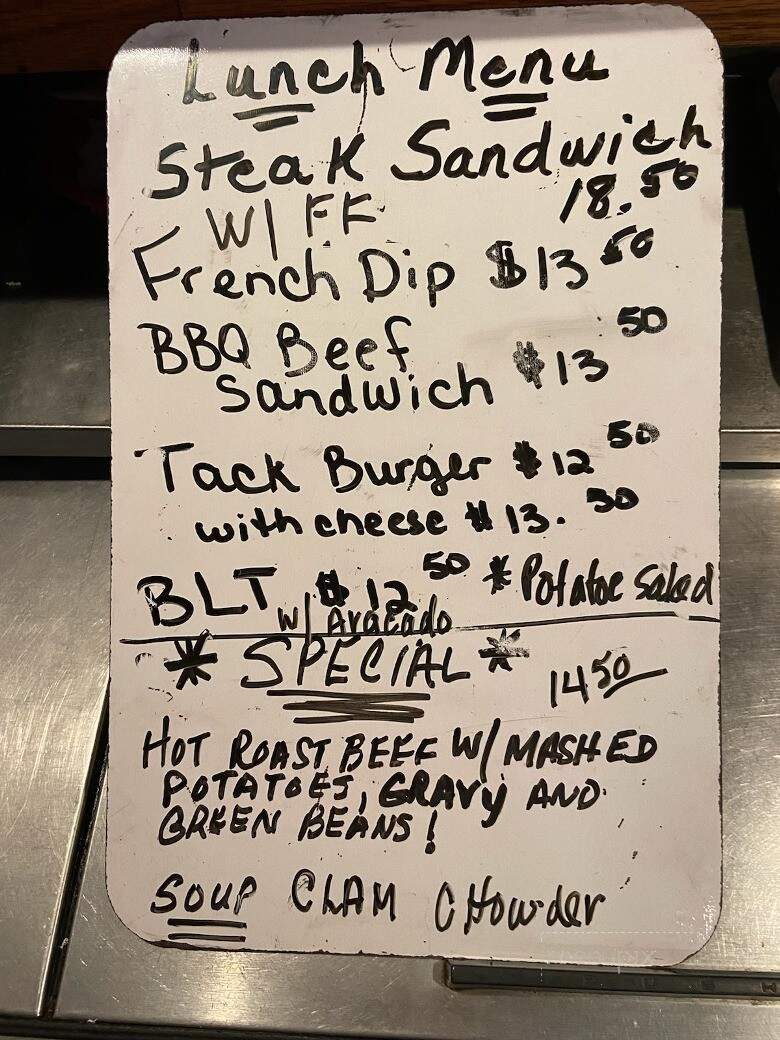 Lunch Menu
Steak Sandwich
W/ FF 18.50
French Dip $13 50
BBQ Beef
Sandwich $13 50
Tack Burger $12 50
with cheese $13. 50
BLT $12 50 * Potatoe Salad
w/ Avacado
* SPECIAL * 14 50
HOT ROAST BEEF W/ MASHED
POTATOES, GRAVY AND
GREEN BEANS!
SOUP CLAM CHowder